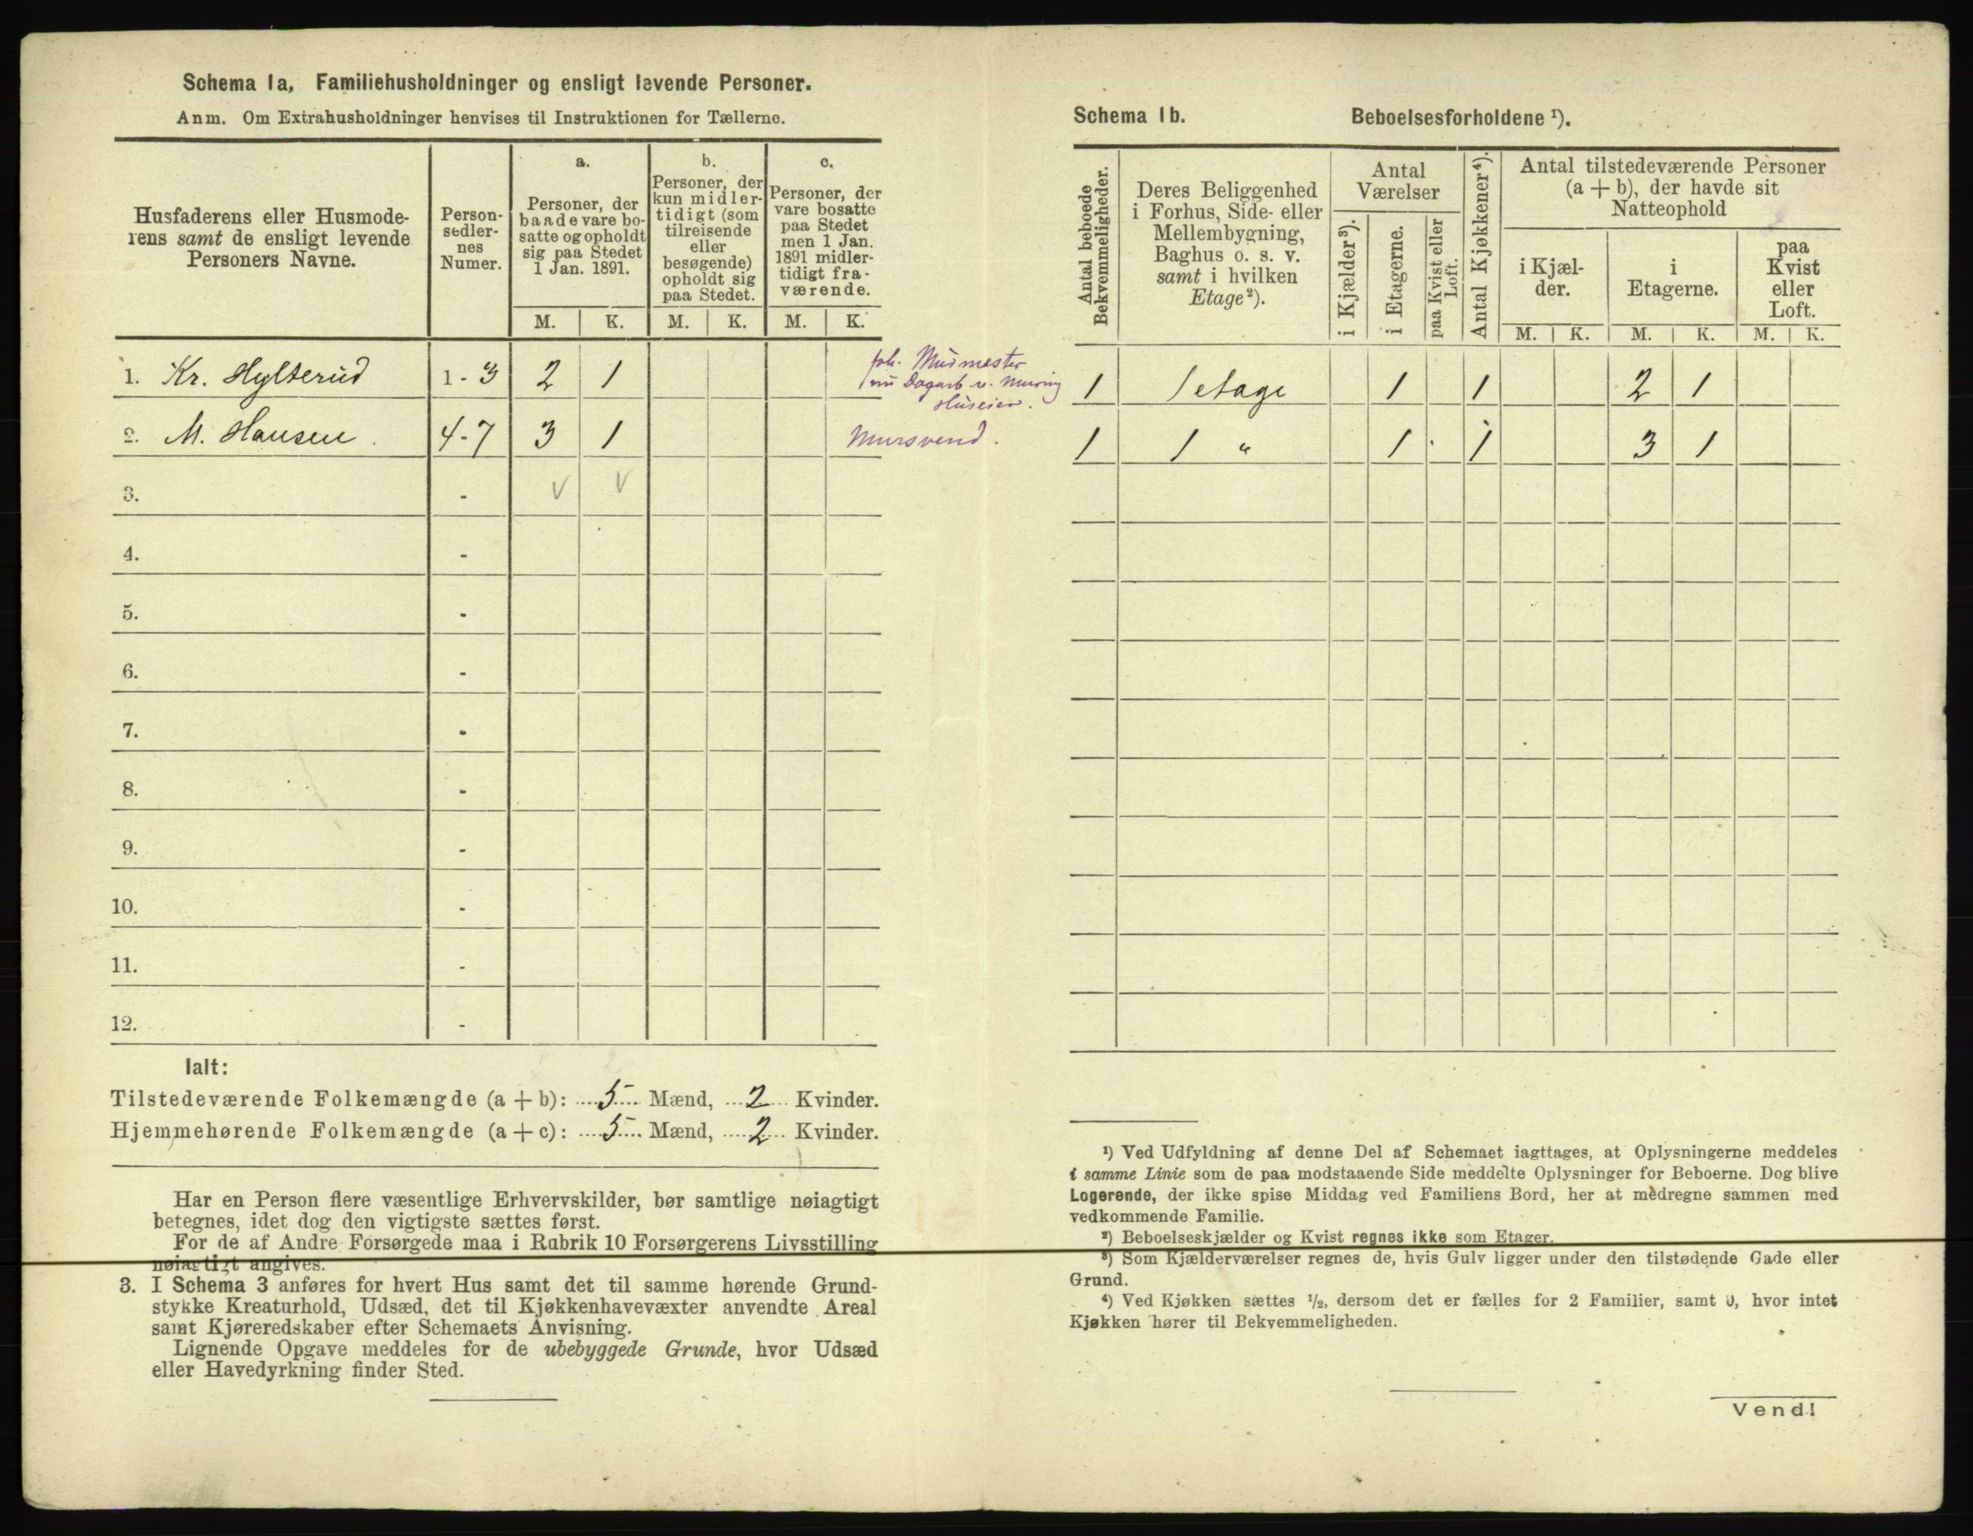 Schema 1a, Familiehusholdninger og ensligt levende Personer.
Anm. Om Extrahusholdninger henvises til Instruktionen for Tællerne.
Husfaderens eller Husmode-
rens samt de ensligt levende
Personers Navne.
Person-
sedler-
nes
Numer.
a.
Personer, der
baade vare bo-
satte og opholdt
sig paa Stedet
1 Jan. 1891.
b.
Personer, der
kun midler-
tidigt (som
tilreisende
eller
besøgende)
opholdt sig
paa Stedet.
c.
Personer, der
vare bosatte
paa Stedet
men 1 Jan.
1891 midler-
tidigt fra-
værende.
M. K. M. K. M. K.
1. Kr. Hylterud 1 - 3 2 1
Murmester
nu Dagarb v. Muring
Huseier.
2. M. Hansen . 4 - 7 3 1 Mursvend.
3. - v v
4. -
5. -
6. -
7. -
8. -
9. -
10. -
11. -
12. -
Ialt:
Tilstedeværende Folkemængde (a + b): 5 Mænd, 2 Kvinder.
Hjemmehørende Folkemængde (a + c): 5 Mænd, 2 Kvinder.
Har en Person flere væsentlige Erhvervskilder, bør samtlige nøiagtigt
betegnes, idet dog den vigtigste sættes først.
For de af Andre Forsørgede maa i Rubrik 10 Forsørgerens Livsstilling
nøiagtigt angives.
3. I Schema 3 anføres for hvert Hus samt det til samme hørende Grund-
stykke Kreaturhold, Udsæd, det til Kjøkkenhavevæxter anvendte Areal
samt Kjøreredskaber efter Schemaets Anvisning.
Lignende Opgave meddeles for de ubebyggede Grunde, hvor Udsæd
eller Havedyrkning finder Sted.
Schema 1b. Beboelsesforholdene ¹).
Antal beboede
Bekvemmeligheder.
Deres Beliggenhed
i Forhus, Side- eller
Mellembygning,
Baghus o. s. v.
samt i hvilken
Etage²).
Antal
Værelser
i Kjælder³).
i Etagerne.
paa Kvist eller
Loft.
Antal Kjøkkener⁴).
Antal tilstedeværende Personer
(a + b), der havde sit
Natteophold
i Kjæl-
der.
i
Etagerne.
paa
Kvist
eller
Loft.
M. K. M. K. M. K.
1 1 etage 1 1 2 1
1 1 " 1 . 1 3 1
¹) Ved Udfyldning af denne Del af Schemaet iagttages, at Oplysningerne meddeles
i samme Linie som de paa modstaaende Side meddelte Oplysninger for Beboerne. Dog blive
Logerende, der ikke spise Middag ved Familiens Bord, her at medregne sammen med
vedkommende Familie.
²) Beboelseskjælder og Kvist regnes ikke som Etager.
³) Som Kjælderværelser regnes de, hvis Gulv ligger under den tilstødende Gade eller
Grund.
⁴) Ved Kjøkken sættes ½, dersom det er fælles for 2 Familier, samt 0, hvor intet
Kjøkken hører til Bekvemmeligheden.
Vend!